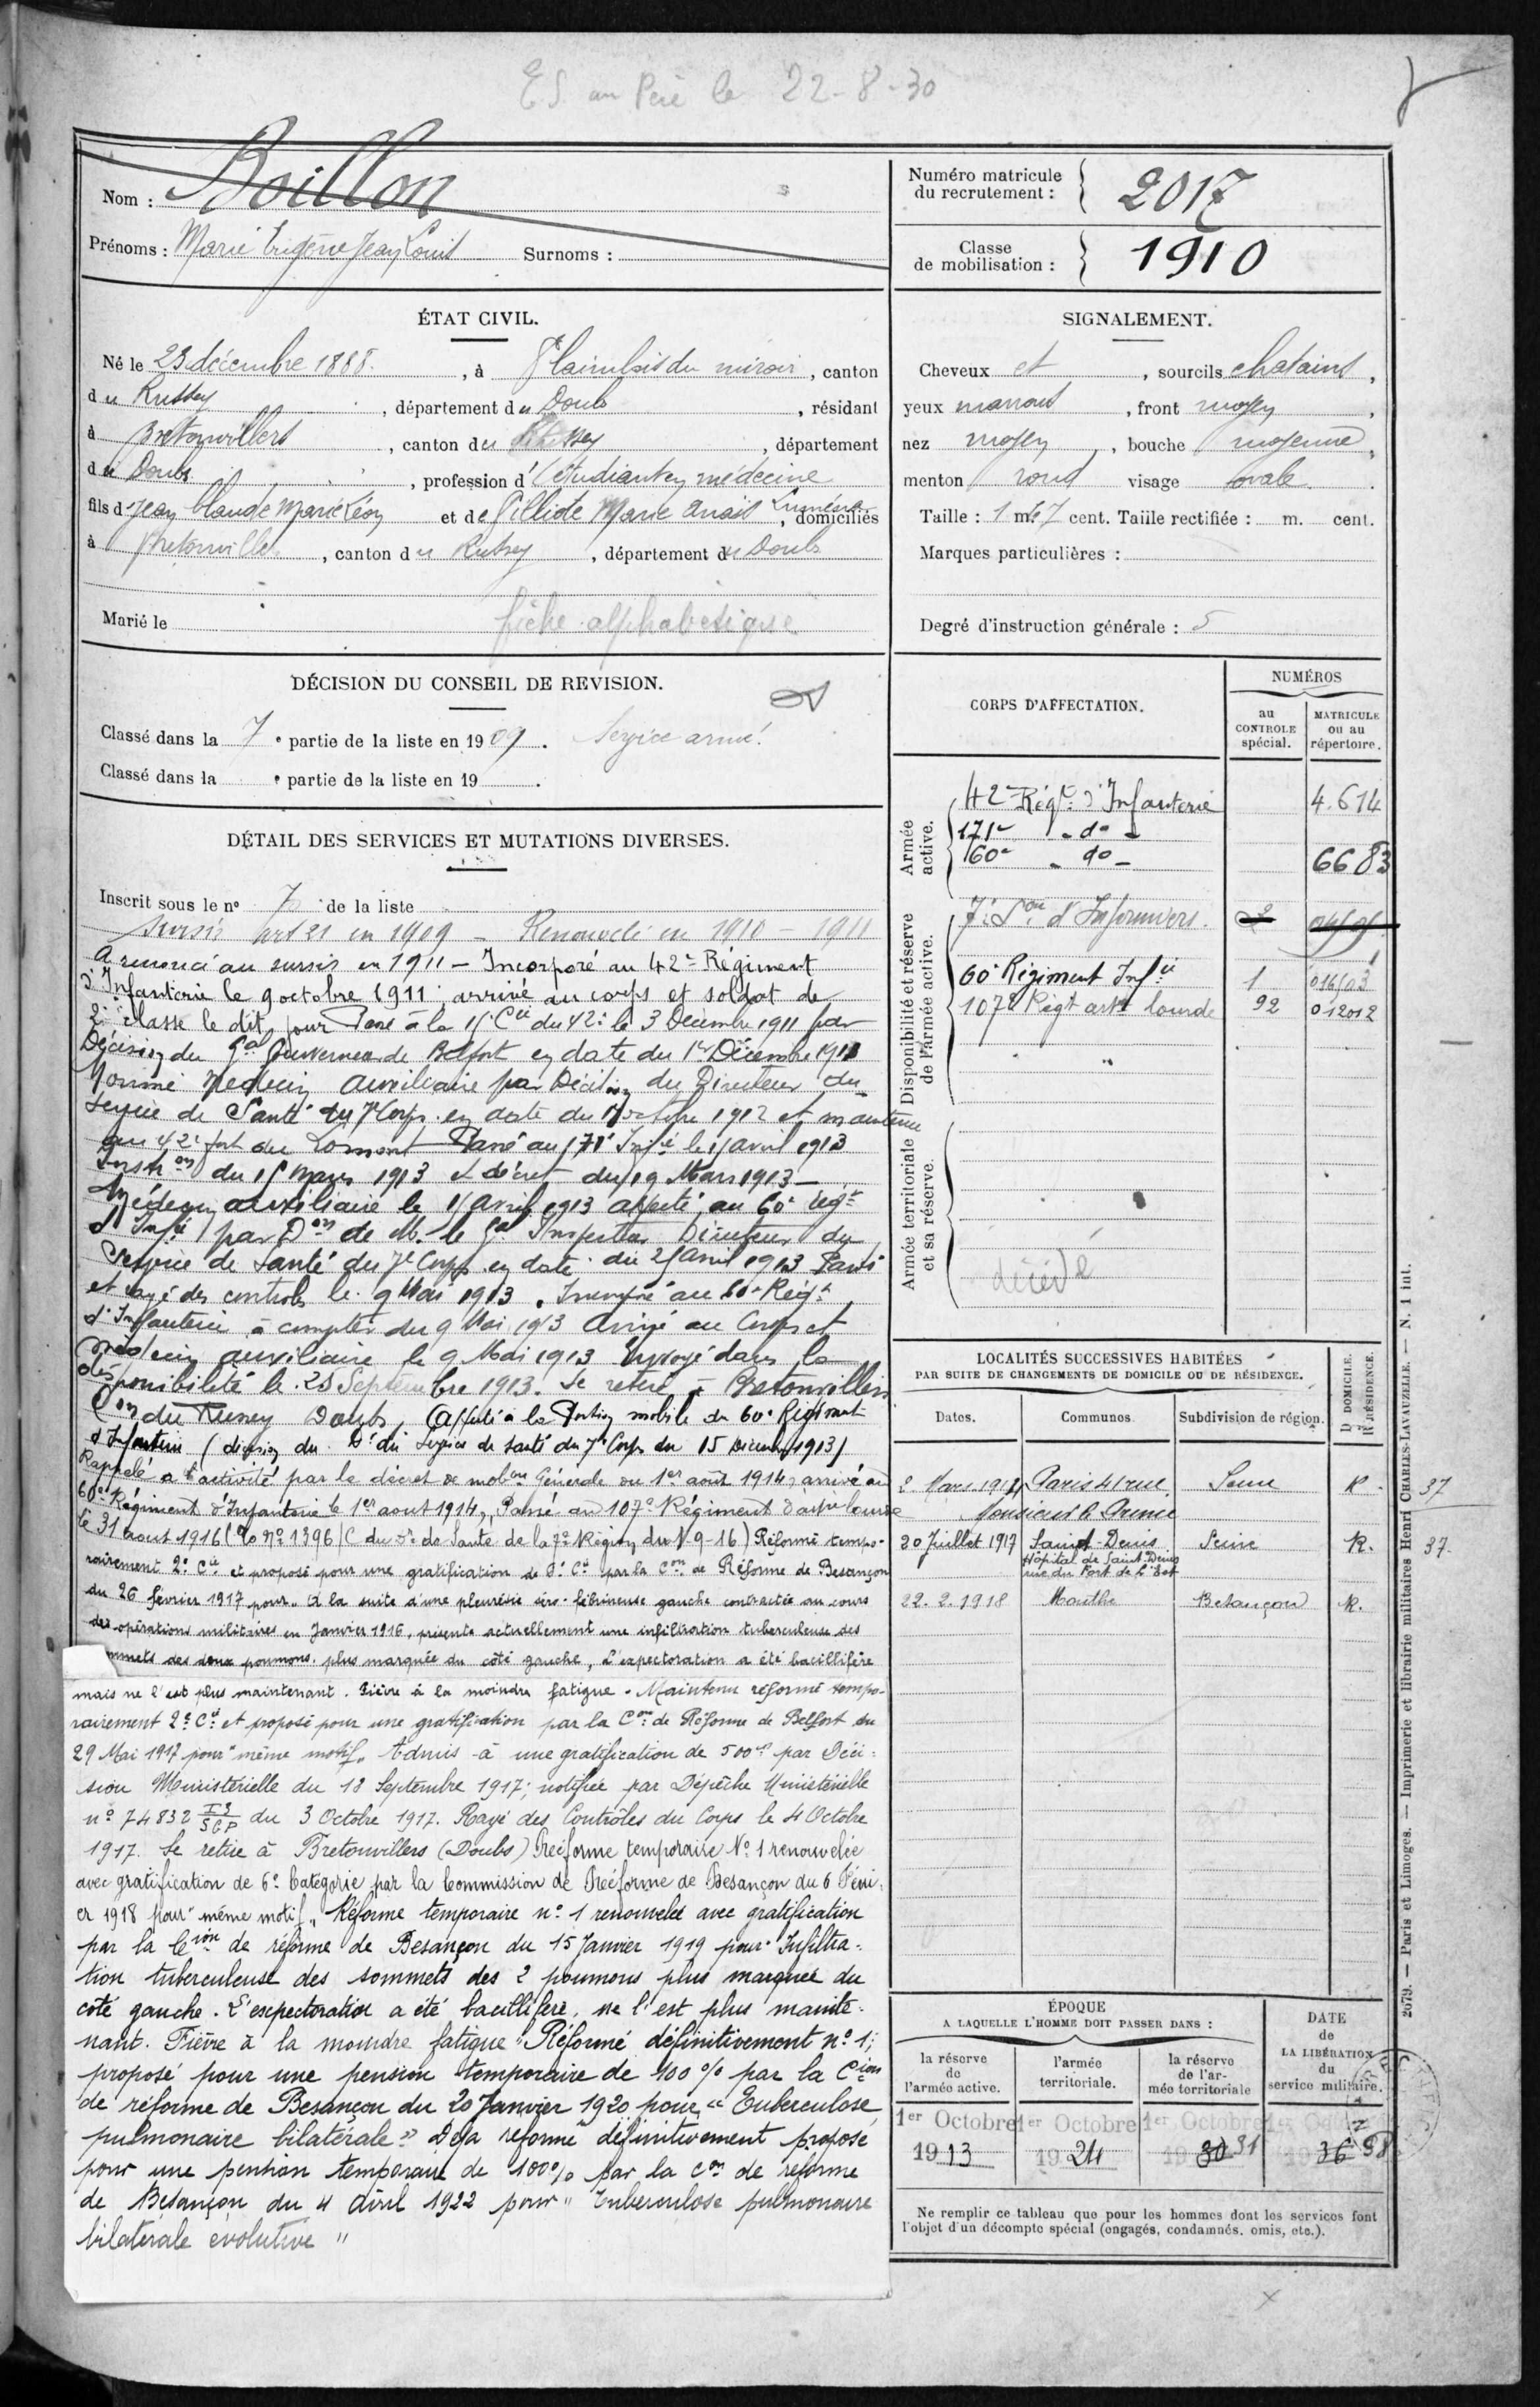 ES au Père le 22-8-30
Nom : Boillon
Prénoms : Marie Eugène Jean Louis Surnoms :
Numéro matricule du recrutement : 2017
Classe de mobilisation : 1910
ÉTAT CIVIL.
Né le 23 décembre 1888. , à Plaimbois du miroir , canton
du Russey , département du Doubs , résidant
à Bretonvillers , canton du Russey , département
du Doubs , profession d'étudiant en médecine
fils d Jean Claude Marie Léon et de Pilliote Marie Anaïs , domiciliés
à Bretonvillers , canton du Russey , département du Doubs
Marié le
fiche alphabétique
SIGNALEMENT.
Cheveux et , sourcils chatains ,
yeux marrons , front moyen ,
nez moyen , bouche moyenne ,
menton rond visage ovale .
Taille : 1 m. 67 cent. Taille rectifiée : m. cent.
Marques particulières :
Degré d'instruction générale : 5
DÉCISION DU CONSEIL DE REVISION.
Classé dans la 7 e partie de la liste en 1909 . Service armé.
Classé dans la e partie de la liste en 19 .
DÉTAIL DES SERVICES ET MUTATIONS DIVERSES.
Inscrit sous le n° 7 de la liste
Sursis art 21 en 1909 – Renouvelé en 1910 – 1911
A renoncé au sursis en 1911 – Incorporé au 42e Régiment
d'Infanterie le 9 octobre 1911, arrivé au corps et soldat de
2e classe le dit jour Passé à la 15e Cie du 42e le 3 Décembre 1911 par
Décision du Gal Gouverneur de Belfort en date du 1er Décembre 1911
Nommé Médecin Auxiliaire par Décision du Directeur du
Service de Santé du 7e Corps en date du octobre 1912 et maintenu
au 42e fort du Lomont Passé au 171e Infie le 15 avril 1913
Instron du 15 Mars 1913 & décret du 19 Mars 1913 –
Médecin auxiliaire le 15 avril 1913 affecté au 60e régt
d'Infie par Don de M. le Gal Inspecteur Directeur du
Service de Santé du 7e Corps en date du 25 avril 1913 Passé
et rayé des controles le 9 Mai 1913. Incorporé au 60e Régt
d'Infanterie à compter du 9 Mai 1913 Arrivé au Corps et
médecin auxiliaire le 9 Mai 1913 Envoyé dans la
disponibilité le 28 Septembre 1913. Se retire à Bretonvillers
Con du Russey Doubs, Affecté à la Portion mobile du 60e Régiment
d'Infanterie (décision du Dr du Service de santé du 7e Corps du 15 Décembre 1913)
Rappelé à l'activité par le décret de mobon Générale du 1er août 1914, arrivé au
60e Régiment d'Infanterie le 1er aout 1914, Passé au 107e Régiment d'artie lourde
le 31 aout 1916 (No 1396/C du Sce de Santé de la 7e Région du 1-9-16) Réformé tempo-
rairement 2e Cie et proposé pour une gratification de Cie par la Con de Réforme de Besançon
du 26 février 1917 pour "à la suite d'une pleurésie séro-fibrineuse gauche contractée au cours
des opérations militaires en Janvier 1916, présente actuellement une infiltration tuberculeuse des
sommets des deux poumons plus marquée du côté gauche, L'expectoration a été bacillifère
mais ne l'est plus maintenant. Fièvre à la moindre fatigue. Maintenu réformé tempo-
rairement 2e Cie et proposé pour une gratification par la Con de Réforme de Belfort du
29 Mai 1917 pour "même motif" Admis à une gratification de 500f par Déci-
sion Ministérielle du 18 Septembre 1917; notifiée par Dépêche Ministérielle
n° 74832 du 3 Octobre 1917. Rayé des Contrôles du Corps le 4 Octobre
1917. Se retire à Bretonvillers (Doubs) Réforme temporaire N° 1 renouvelée
avec gratification de 6e Catégorie par la Commission de Réforme de Besançon du 6 Févri-
er 1918 pour "même motif" Réforme temporaire n° 1 renouvelée avec gratification
par la Cion de réforme de Besançon du 15 Janvier 1919 pour "Infiltra-
tion tuberculeuse des sommets des 2 poumons plus marquée du
côté gauche. L'expectoration a été bacillifère, ne l'est plus mainte-
nant. Fièvre à la moindre fatigue" Réformé définitivement n° 1;
proposé pour une pension temporaire de 100 % par la Cion
de réforme de Besançon du 20 Janvier 1920 pour "Tuberculose
pulmonaire bilatérale" Déjà réformé définitivement proposé
pour une pension temporaire de 100 % par la Con de réforme
de Besançon du 4 avril 1922 pour "Tuberculose pulmonaire
bilatérale évolutive"
CORPS D'AFFECTATION.
NUMÉROS
au CONTROLE spécial.
MATRICULE ou au répertoire.
Armée active.
42e Régt d'Infanterie 4.614
171e – do –
160e – do – 6683
Disponibilité et réserve de l'armée active.
7e Son d'Infirmiers. 2
60e Régiment Infie 1
107e Régt artie lourde 92 012012
Armée territoriale et sa réserve.
décédé
LOCALITÉS SUCCESSIVES HABITÉES
PAR SUITE DE CHANGEMENTS DE DOMICILE OU DE RÉSIDENCE.
Dates. Communes. Subdivision de région. D DOMICILE. R RÉSIDENCE.
2 Mars 1914 Paris 41 rue Seine R. 37
Monsieur le Prince
20 Juillet 1917 Saint-Denis Seine R. 37.
Hôpital de Saint Denis
rue du Fort de l'Est
22.2.1918 Mouthe Besançon R.
ÉPOQUE
A LAQUELLE L'HOMME DOIT PASSER DANS :
la réserve de l'armée active.
l'armée territoriale.
la réserve de l'armée territoriale
DATE de LA LIBÉRATION du service militaire.
1er Octobre 1er Octobre 1er Octobre 1er Octobre
1913 1924 1930 31 1936 38
Ne remplir ce tableau que pour les hommes dont les services font
l'objet d'un décompte spécial (engagés, condamnés, omis, etc.).
2679. — Paris et Limoges. — Imprimerie et librairie militaires Henri CHARLES-LAVAUZELLE. — N. 1 int.